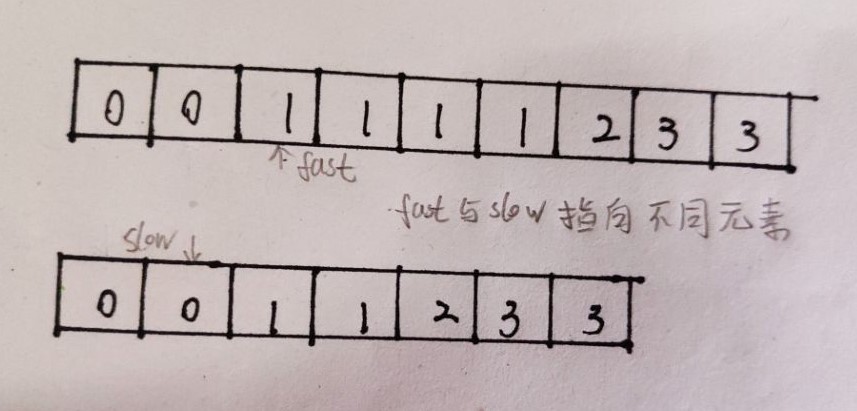 0 0 1 1 1 1 2 3 3
fast
fast与slow 指向 不同元素
slow
0 0 1 1 2 3 3